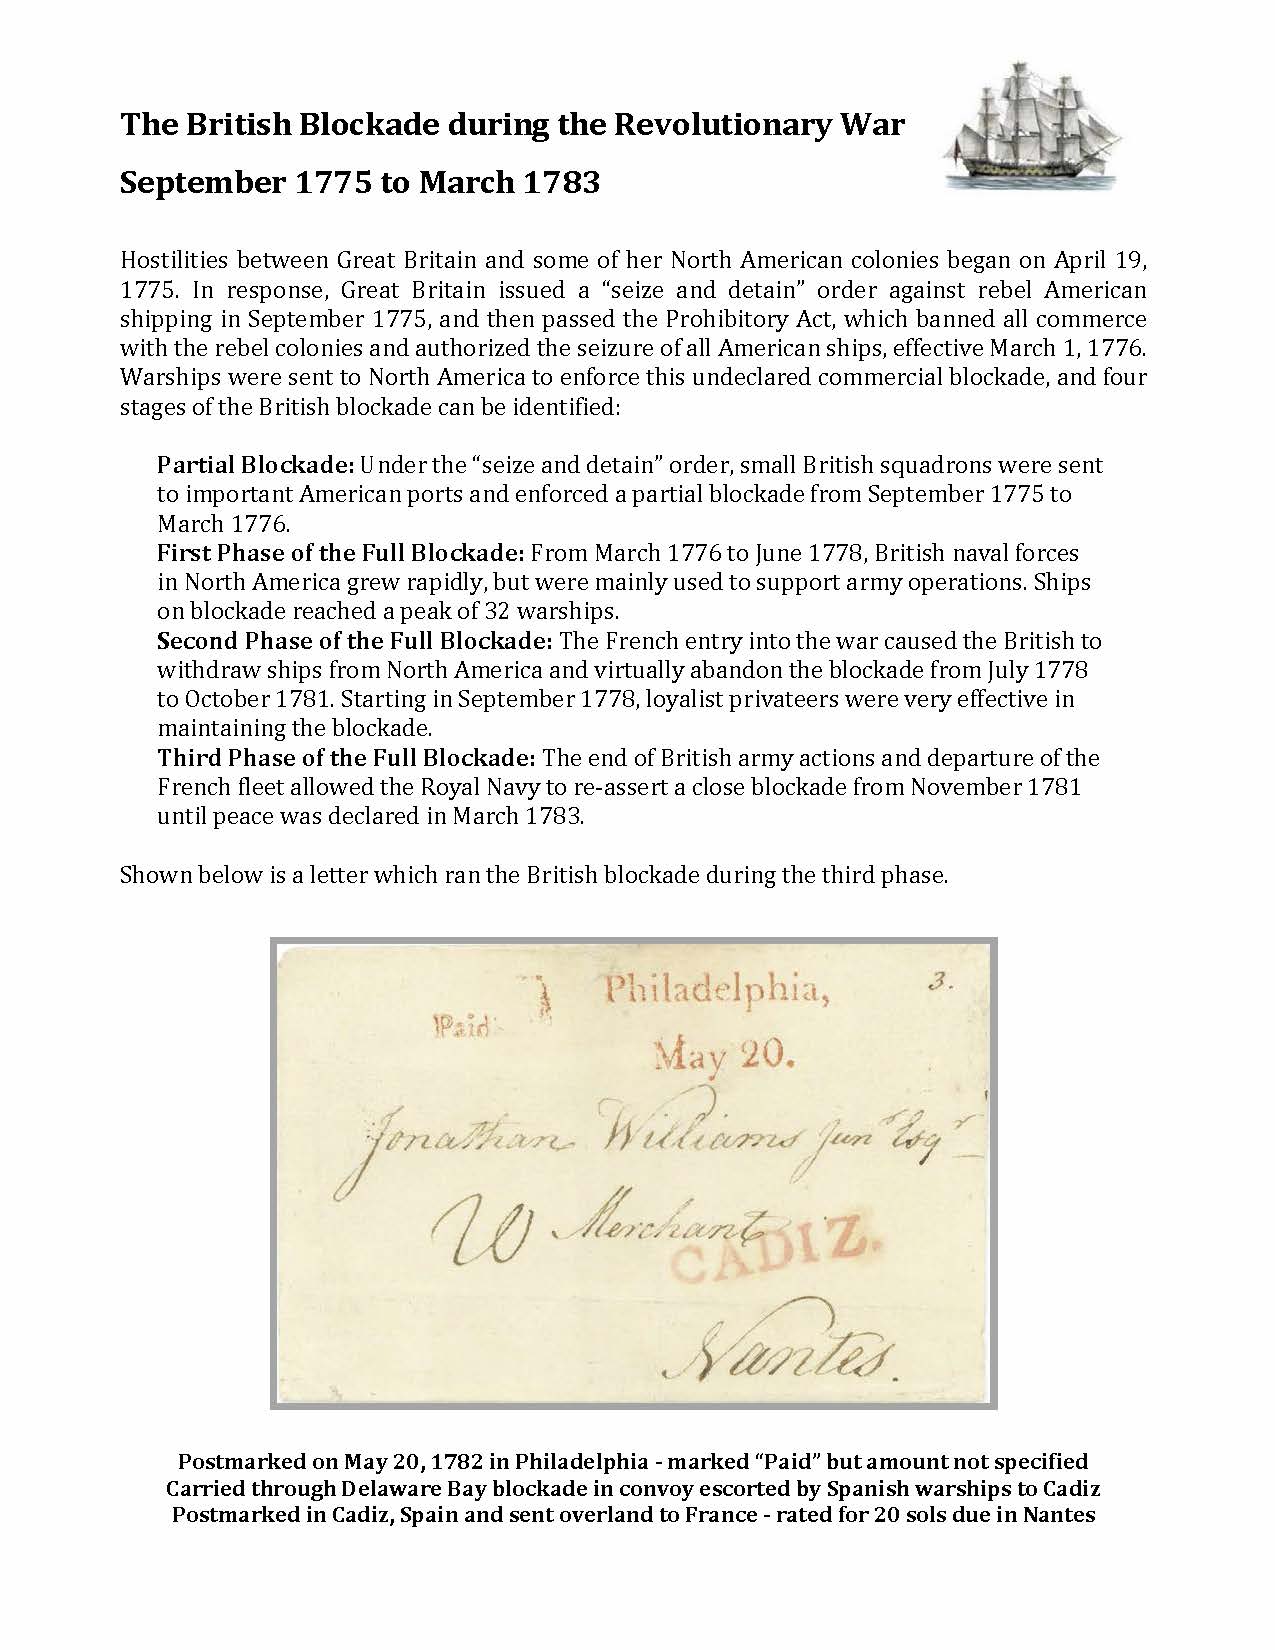 The British Blockade during the Revolutionary War
September 1775 to March 1783
Hostilities between Great Britain and some of her North American colonies began on April 19,
1775. In response, Great Britain issued a “seize and detain” order against rebel American
shipping in September 1775, and then passed the Prohibitory Act, which banned all commerce
with the rebel colonies and authorized the seizure of all American ships, effective March 1, 1776.
Warships were sent to North America to enforce this undeclared commercial blockade, and four
stages of the British blockade can be identified:
Partial Blockade: Under the “seize and detain” order, small British squadrons were sent
to important American ports and enforced a partial blockade from September 1775 to
March 1776.
First Phase of the Full Blockade: From March 1776 to June 1778, British naval forces
in North America grew rapidly, but were mainly used to support army operations. Ships
on blockade reached a peak of 32 warships.
Second Phase of the Full Blockade: The French entry into the war caused the British to
withdraw ships from North America and virtually abandon the blockade from July 1778
to October 1781. Starting in September 1778, loyalist privateers were very effective in
maintaining the blockade.
Third Phase of the Full Blockade: The end of British army actions and departure of the
French fleet allowed the Royal Navy to re-assert a close blockade from November 1781
until peace was declared in March 1783.
Shown below is a letter which ran the British blockade during the third phase.
Philadelphia,
3.
Paid
May 20.
Jonathan Williams Junr Esqr
Merchant
CADIZ.
Nantes.
Postmarked on May 20, 1782 in Philadelphia - marked “Paid” but amount not specified
Carried through Delaware Bay blockade in convoy escorted by Spanish warships to Cadiz
Postmarked in Cadiz, Spain and sent overland to France - rated for 20 sols due in Nantes